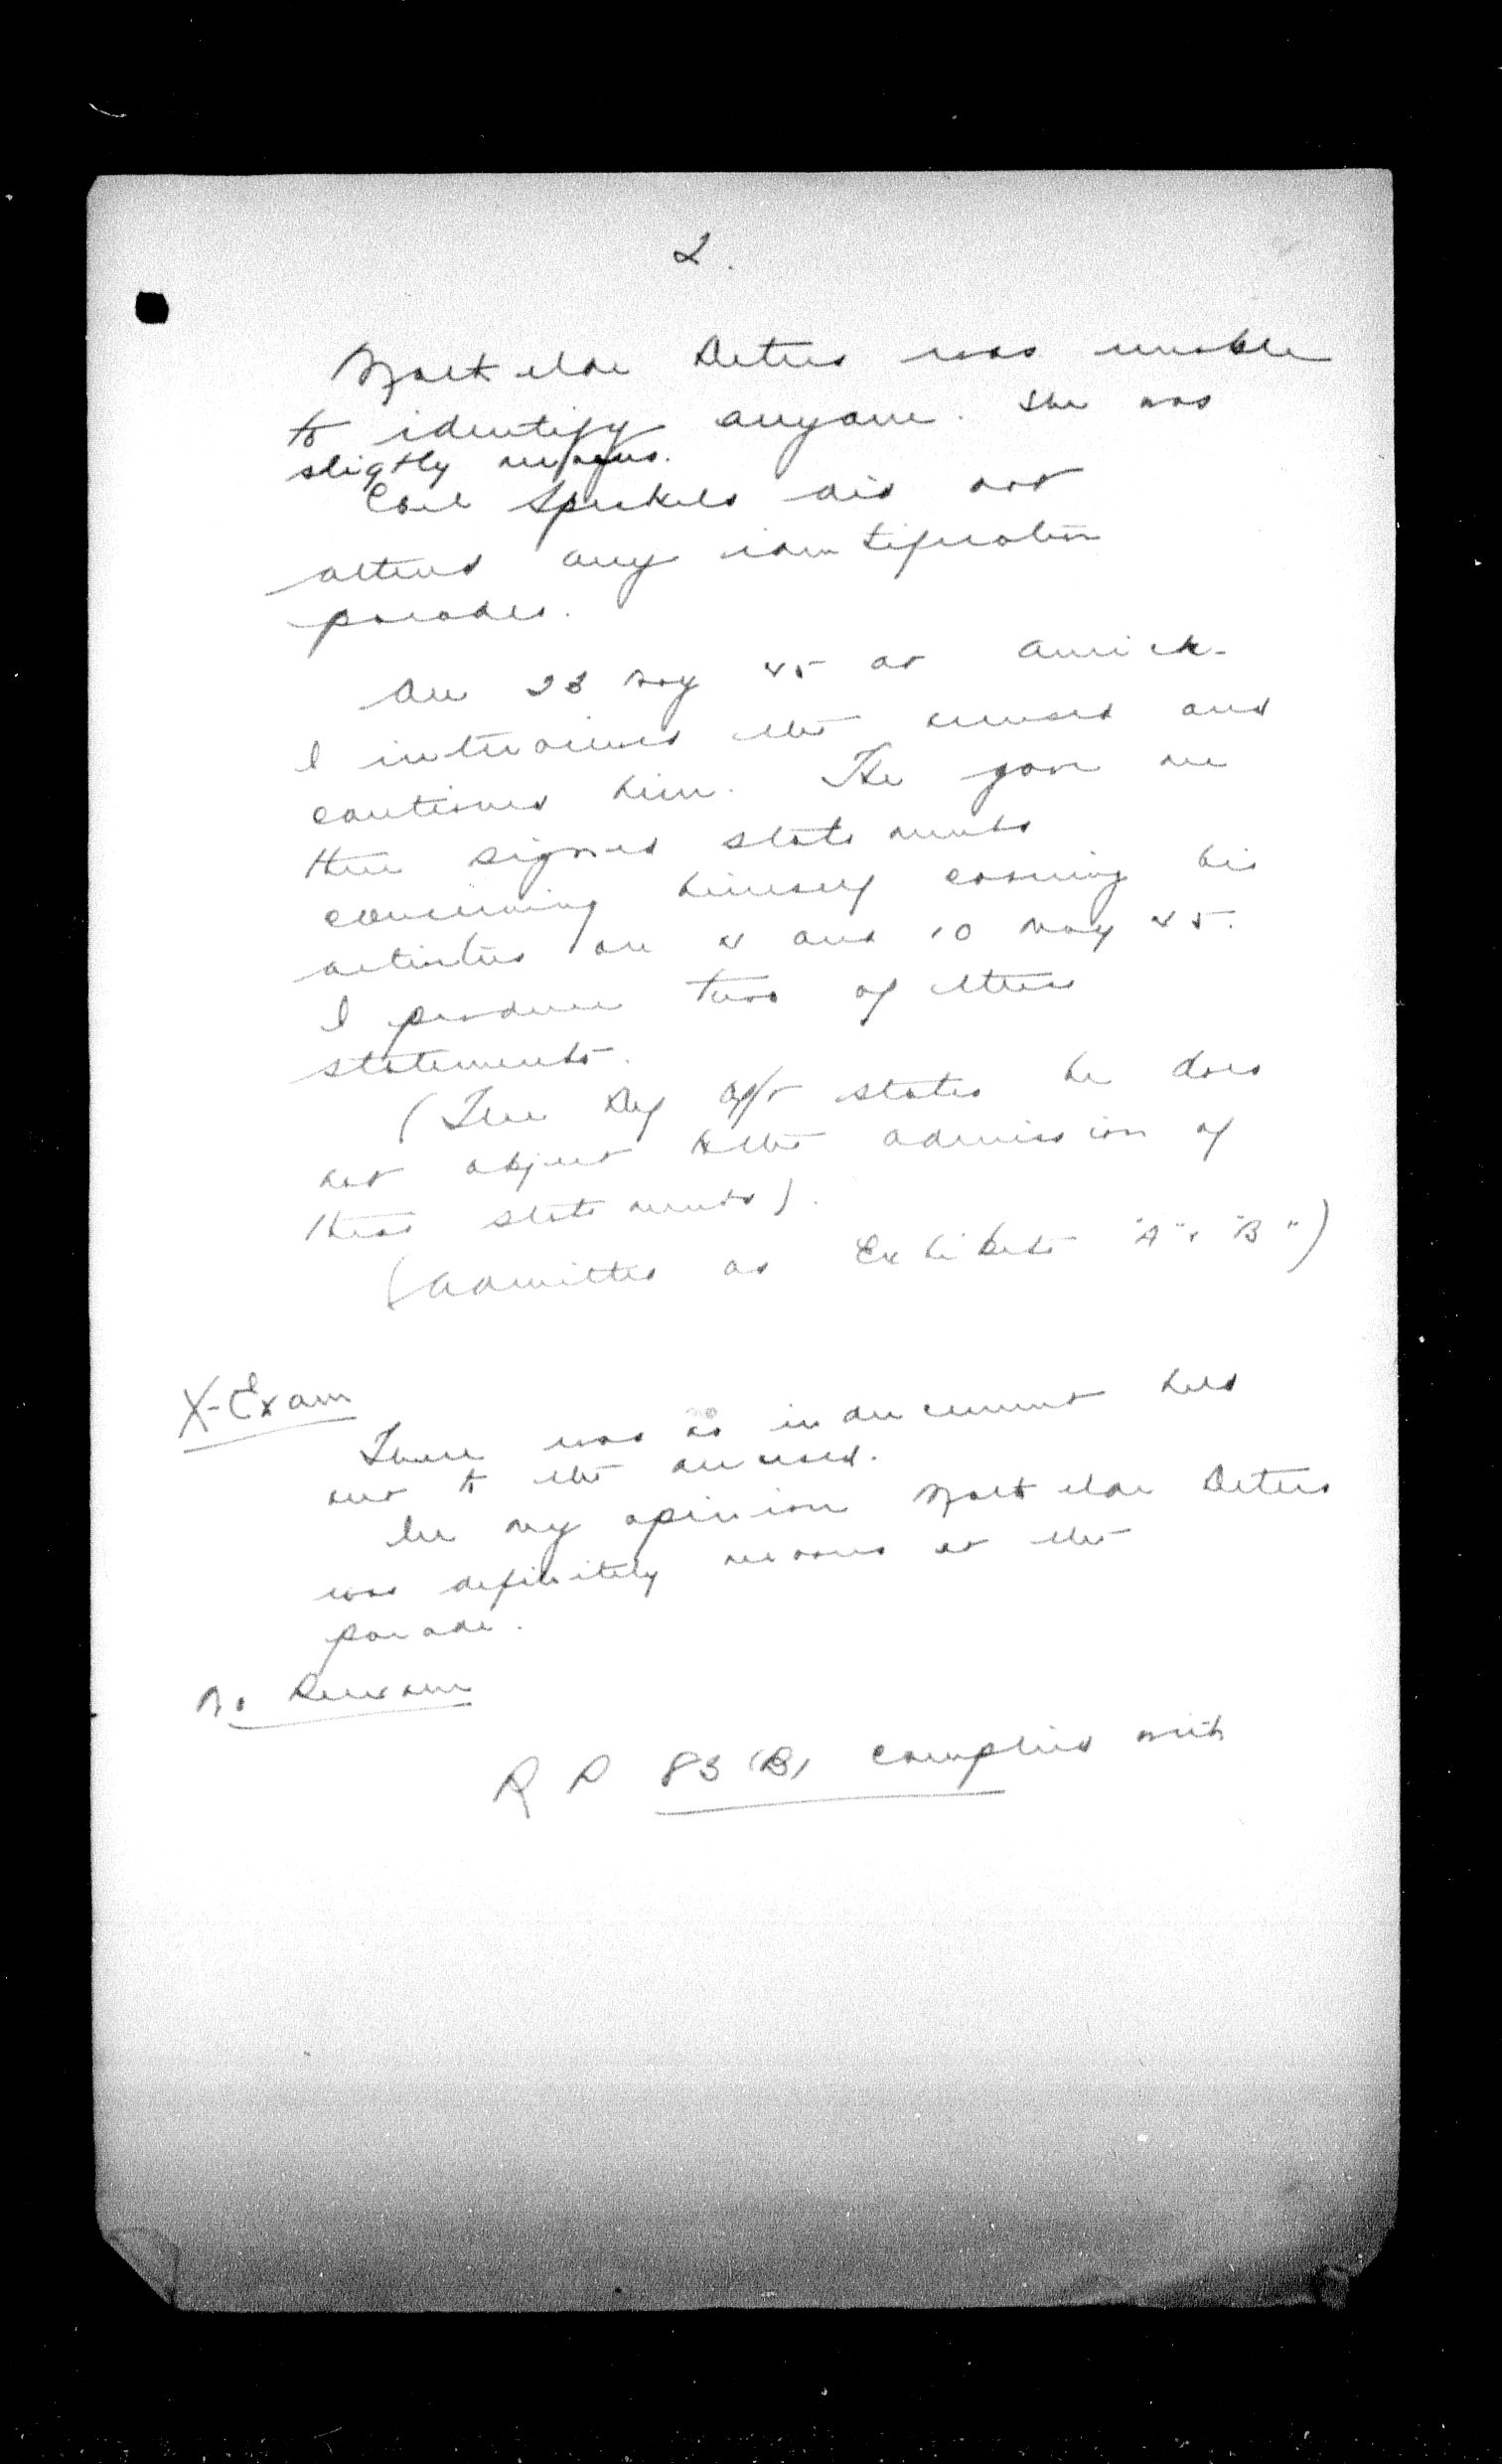 2.
Deters was unable
to identify anyone. She was
slightly nervous.
Carl Speckels did not
attend any identification
parades.
On 23 May 45 at Aurich
I interviewed the accused and
cautioned him. He gave me
three signed statements
concerning himself covering his
activities on 4 and 10 May 45.
I produce two of these
statements.
(The Def Offr states he does
not object to the admission of
these statements).
(Admitted as Exhibits "A" & "B")
X-Exam
There was no inducement held
out to the accused.
In my opinion Deters
was definitely nervous at the
parade.
No Reexam
R P 83 (B) complied with